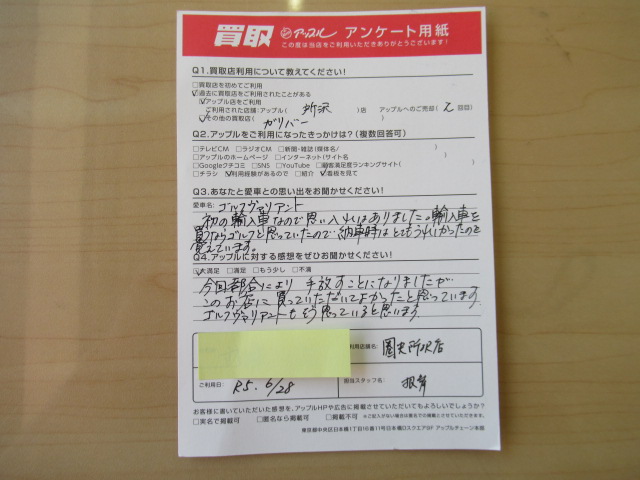 買取 アップル アンケート用紙
この度は当店をご利用いただきありがとうございます!
Q1.買取店利用について教えてください!
□買取店を初めてご利用
☑過去に買取店をご利用されたことがある
☑アップル店をご利用
ご利用された店舗:アップル( 所沢 )店 アップルへのご売却( 2 回目)
☑その他の買取店( ガリバー )
Q2.アップルをご利用になったきっかけは?(複数回答可)
□テレビCM □ラジオCM □新聞・雑誌(媒体名/ )
□アップルのホームページ □インターネット(サイト名 )
□Googleクチコミ □SNS □YouTube □顧客満足度ランキングサイト( )
□チラシ ☑利用経験があるので □紹介 ☑看板を見て
Q3.あなたと愛車との思い出をお聞かせください!
愛車名: ゴルフヴァリアント
初の輸入車なので思い入れはありました。輸入車を
買うならゴルフと思っていたので納車時はとてもうれしかったのを
覚えています。
Q4.アップルに対する感想をぜひお聞かせください!
☑大満足 □満足 □もう少し □不満
今回都合により手放すことになりましたが
このお店に買っていただいてよかったと思っています
ゴルフヴァリアントもそう思っていると思います
利用店舗名: 圏央所沢店
ご利用日: R5. 6/28
担当スタッフ名:
お客様に書いていただいた感想を、アップルHPや広告に掲載させていただいてもよろしいでしょうか?
□実名で掲載可 □匿名なら掲載可 □掲載不可 ※ご記入がない場合は匿名での掲載とさせていただきます。
東京都中央区日本橋1丁目16番11号日本橋DスクエアBF アップルチェーン本部